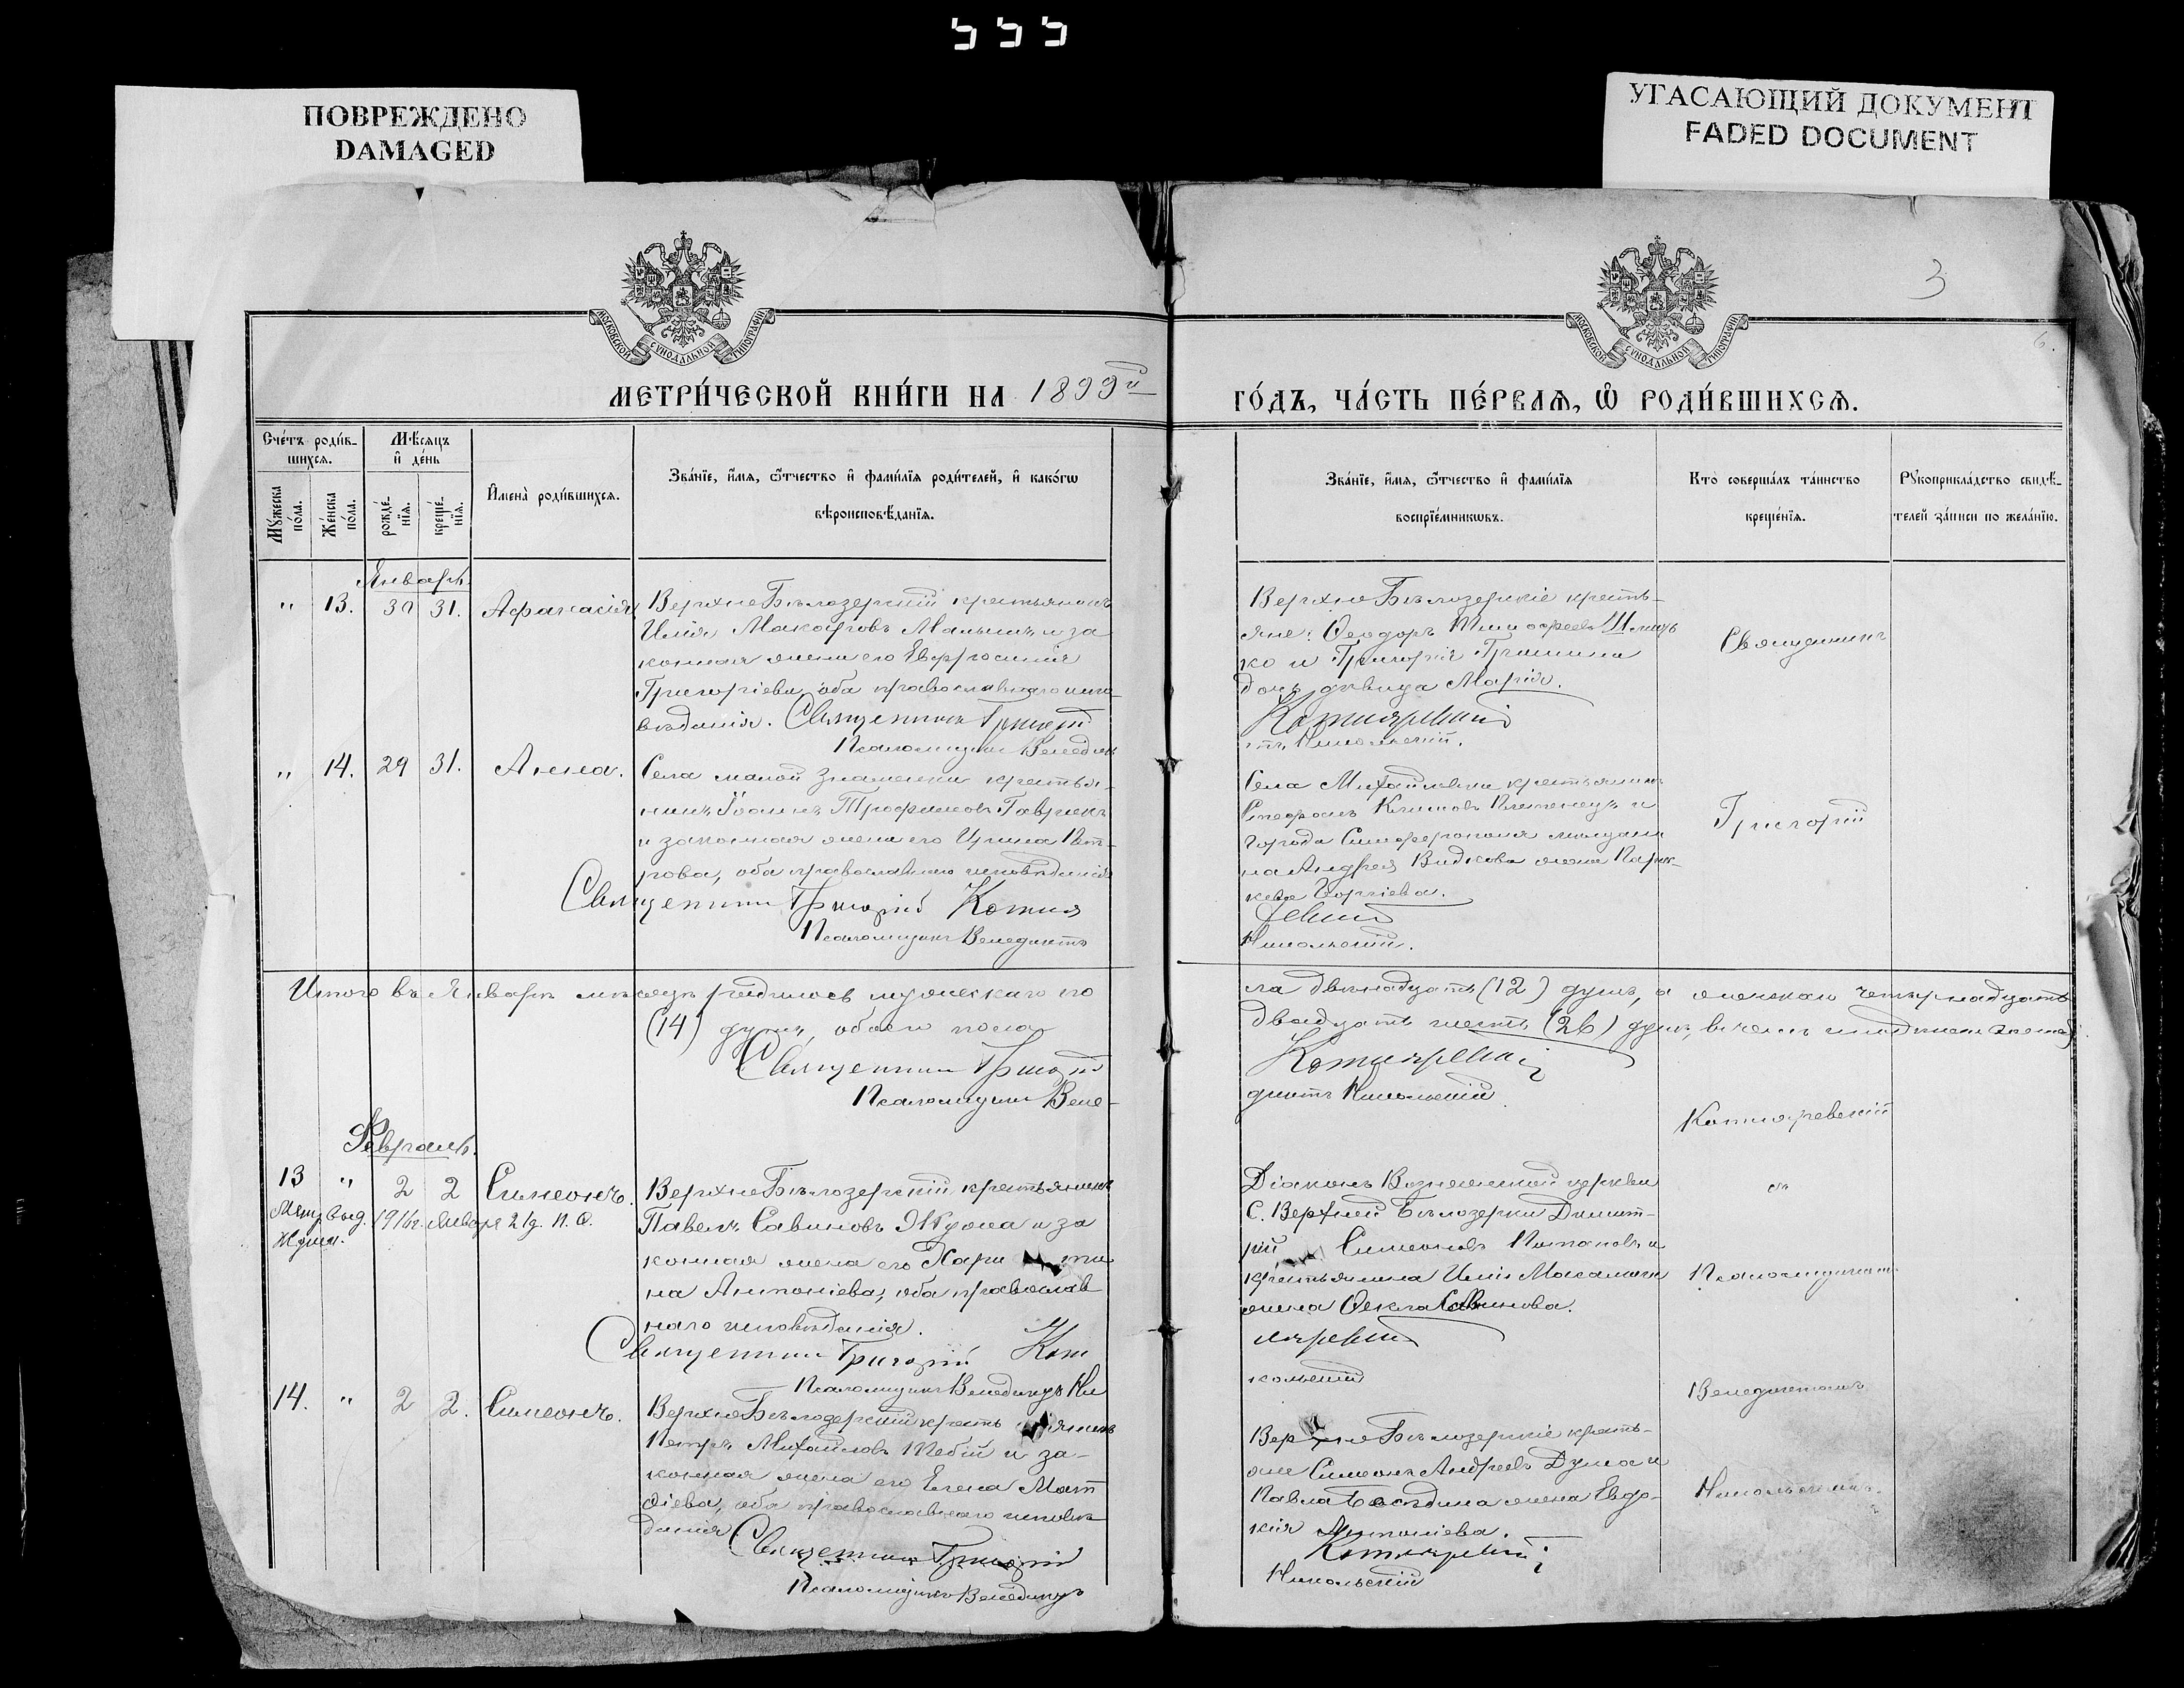 ПОВРЕЖДЕНО
DAMAGED
УГАСАЮЩИЙ ДОКУМЕНТ
FADED DOCUMENT
3
6.
МОСКОВСКОЙ СѴНОДАЛЬНОЙ ТИПОГРАФІИ
МОСКОВСКОЙ СѴНОДАЛЬНОЙ ТИПОГРАФІИ
МЕТРИ́ЧЕСКОЙ КНИ́ГИ НА 1899й
ГО́ДЪ, ЧА́СТЬ ПЕ́РВАѦ, Ѿ РОДИ́ВШИХСѦ.
Сче́тъ роди́в-
шихсѧ.
Мѣ́сѧцъ
и҆ де́нь
Мꙋ́жеска по́ла.
Же́нска по́ла.
рожде́-
нїѧ.
креще́-
нїѧ.
И҆мена̀ роди́вшихсѧ.
Зва́нїе, и҆́мѧ, ѻ҆́тчество и҆ фами́лїѧ роди́телей, и҆ како́гѡ
вѣроисповѣ́данїѧ.
Зва́нїе, и҆́мѧ, ѻ҆́тчество и҆ фами́лїѧ
воспрїе́мникѡвъ.
Кто̀ соверша́лъ та́инство
креще́нїѧ.
Рꙋкоприкла́дство свидѣ́-
телей за́писи по жела́нїю.
Январь
" 13. 30 31. Афанасія
ВерхнеБѣлозерскій крестьянинъ
Илія Макаровъ и за
конная жена его Евфросинія
Григоріева, оба православнаго испо-
вѣданія. Священникъ Григорій
Псаломщикъ Венедик
ВерхнеБѣлозерскіе кресть-
яне: Ѳеодоръ Тимофеевъ
ко и Григорія
дочь дѣвица Марія.
Котляревскій
тъ Никольскій.
Священникъ
" 14. 29 31. Анна.
Села малой Знаменки крестья-
нинъ Іоаннъ Трофимовъ
и законная жена его Ирина Пет-
рова, оба православнаго исповѣданія
Священникъ Григорій Котля
Псаломщикъ Венедиктъ
Села Михайловки крестьянинъ
Стефанъ Климовъ и
города Симферополя мещани
на Андрея жена Парас-
кева Георгіева.
ревскій
Никольскій.
Григорій
Итого въ Январѣ мѣсяцѣ родилось мужескаго по
ла двѣнадцать (12) душъ, а женскаго четырнадцать
(14) душъ, обоего пола
двадцать шесть (26) душъ,
Священникъ Григорій
Котляревскій
Псаломщикъ Вене-
диктъ Никольскій
Котляревскій
Февраль.
13 " 2 2 Симеонъ.
Метр. выд. 1916 г. Января 21 д.
ВерхнеБѣлозерскій крестьянинъ
Павелъ Савиновъ и за
конная жена его Хари ти
на Антоніева, оба православ
наго исповѣданія.
Священникъ Григорій Кот
Псаломщикъ Венедиктъ Ни
Діаконъ Вознесенской церкви
С. Верхней Бѣлозерки Димит-
рій Симеоновъ Потаповъ и
крестьянина Иліи
жена Ѳекла Саввинова.
ляревскій
кольскій
съ
Псаломщикомъ
Венедиктомъ
Никольскимъ.
14. " 2 2. Симеонъ.
ВерхнеБѣлозерскій кресть янинъ
Петръ Михайловъ и за-
конная жена его Елена Мат
ѳіева, оба православнаго исповѣ
данія Священникъ Григорій
Псаломщикъ Венедиктъ
ВерхнеБѣлозерскіе кресть-
яне Симеонъ Андреевъ Дума и
Павла жена Евдо-
кія Антоніева.
Котляревскій
Никольскій